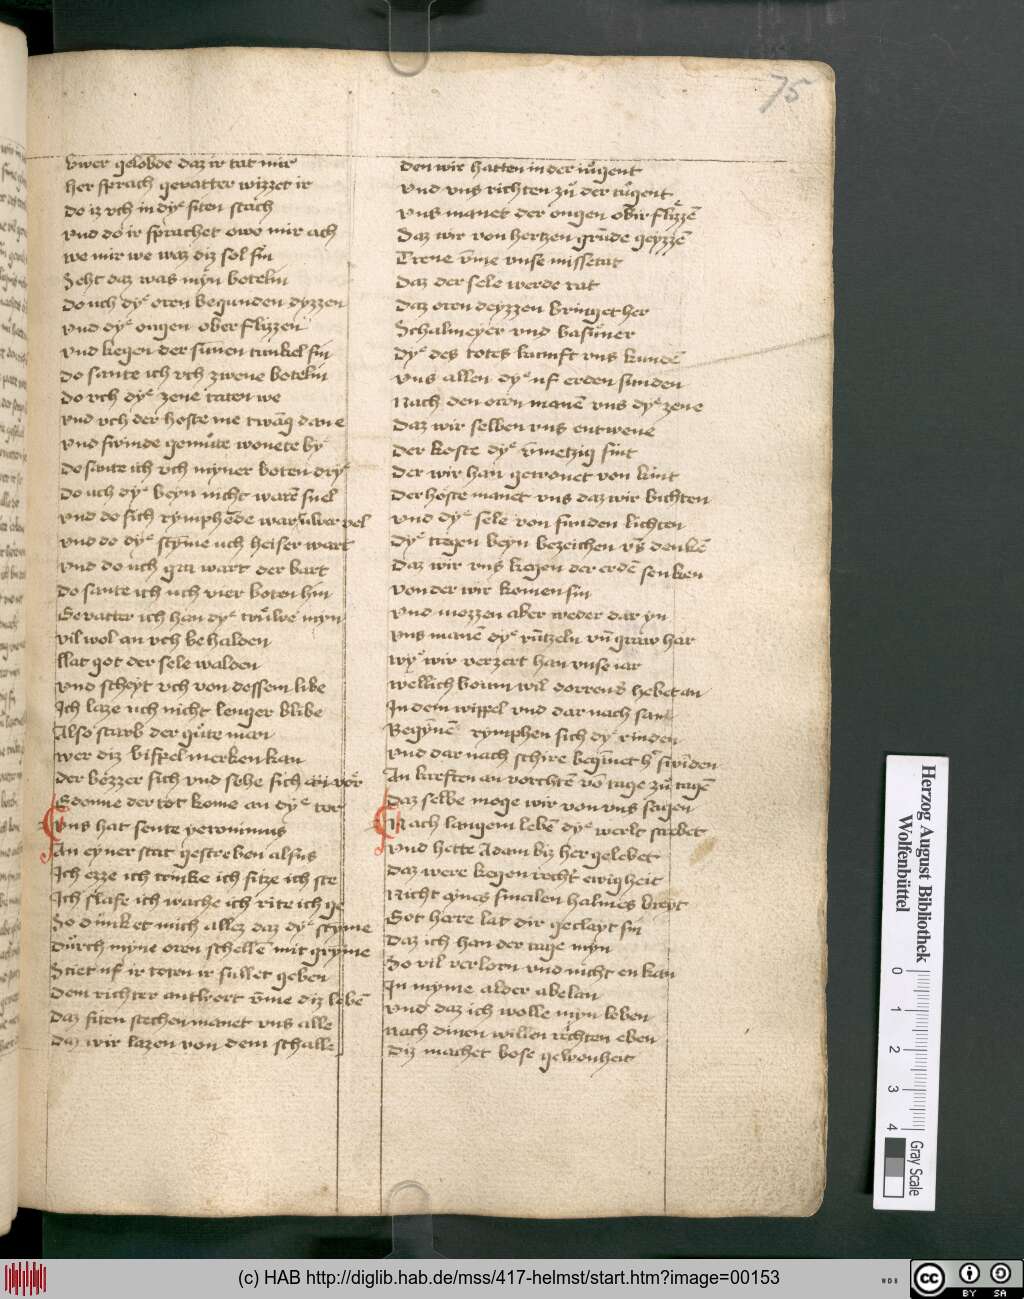 75
vwer gelobde daz ir tat mir
her sprach gevatter wizzet ir
do iz vch in dy siten stach
vnd do ir sprachet owe mir ach
we mir we waz diz sol sin
Seht daz was myn botelin
do uch dy oren begunden dyzzen
vnd dy ougen ober flizzen
vnd kegen der sunen tunkel sin
do sante ich vch zwene botelin
do vch dy zene taten we
vnd vch der hoste me twang dan e
vnd swinde gemute wonete by
do sante ich vch myner boten dry
do uch dy beyn nicht waren snel
vnd do sich rymphende war ulver vel
vnd do dy styme uch heiser wart
vnd do uch gra wart der bart
do sante ich uch vier boten hin
Gevatter ich han dy truwe myn
vil wol an vch behalden
llat got der sele walden
vnd scheyt vch von dessem libe
Ich laze uch nicht lenger blibe
Also starb der gute man
wer diz bispel merken kan
der bezzer sich vnd sehe sich vor
E donne der tot kome an dy tor
vns hat sente yeronimus
An eyner stat gescreben alsus
Ich ezze ich trinke ich sitze ich ste
Ich slafe ich wache ich rite ich ge
So dunket mich allez daz dy styme
durch myne oren schellen mit gryme
Stiet uf ir toten ir sullet geben
dem richter antwert vme diz leben
daz siten stechen manet vns alle
daz wir lazen von dem schalle
den wir hatten in der iugent
vnd vns richten zu der tugent
vns manet der ougen obir flizzen
daz wir von hertzen grunde geyzzen
Trene vme vnse missetat
daz der sele werde rat
daz oren deyzzen bringet her
Schalmeyer vnd basuner
dy des totes kumft vns kunden
vns allen dy uf erden sunden
Nach den oren manen vns dy zene
daz wir selben vns entwene
der koste dy vmetzig sint
der wir han gewonet von kint
der hoste manet vns daz wir bichten
vnd dy sele von sunden lichten
dy tregen beyn bezeichen vns denken
daz wir vns kegen der erden senken
von der wir komen sin
vnd mozzen aber weder dar yn
vns manen dy runtzeln vnd graw har
wy wir verzert han vnse iar
wellich boum wil dorrens hebet an
In dem wippel vnd dar nach san
Begynen rymphen sich dy rinden
vnd dar nach schire begynet her swinden
An kreften an vorchten von tage zu tagen
daz selbe moge wir von vns sagen
Nach langem leben dy werlt strebet
vnd hette Adam biz her gelebet
daz were kegen recht ewigheit
Nicht eynes smalen halmes breyt
Got herre lat dir geclayt sin
daz ich han der tage myn
So vil verlorn vnd nicht en kan
In myme alder abelan
vnd daz ich wolle myn leben
nach dinen willen rechten eben
diz machet bose gewonheit
Herzog August Bibliothek
Wolfenbüttel
0 1 2 3 4
Gray Scale
(c) HAB http://diglib.hab.de/mss/417-helmst/start.htm?image=00153
WDB
CC BY SA